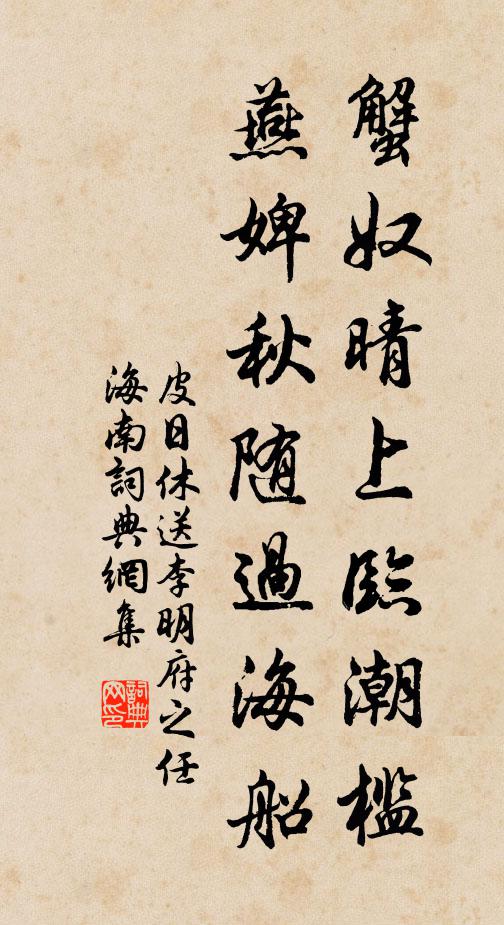 蟹奴晴上臨潮檻
燕婢秋随過海船
皮日休送李明府之任
海南詞典網集
詞典網印